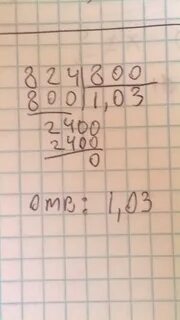 824 800
800 1,03
2400
2400
0
Отв: 1,03